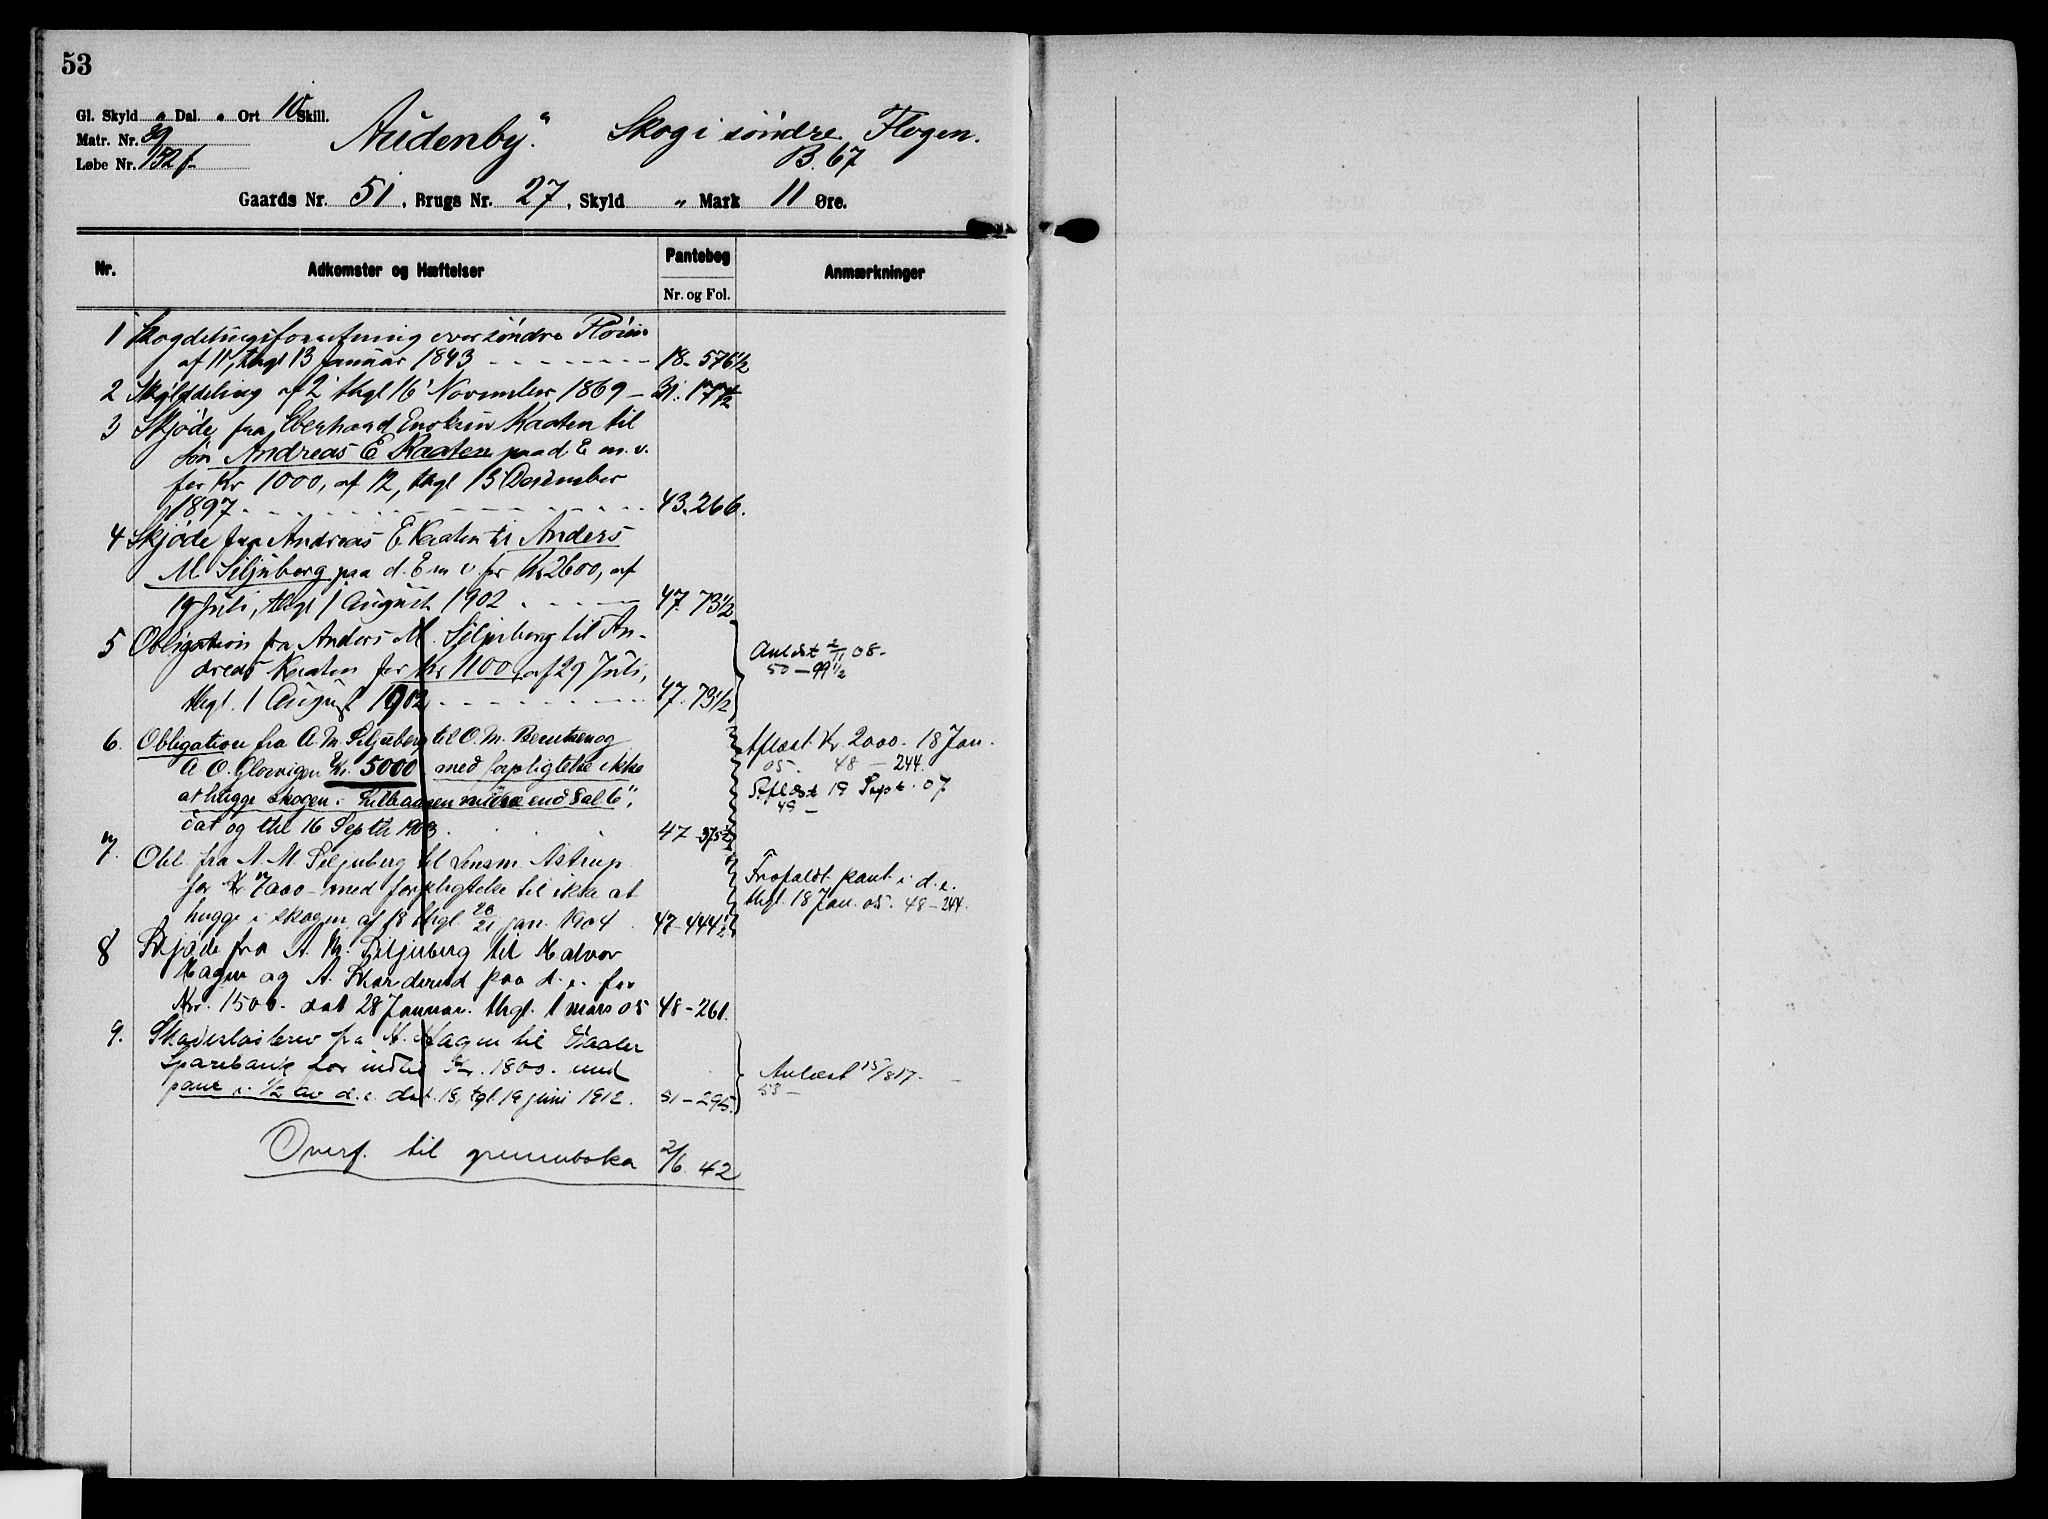 53
Gl. Skyld " Dal. " Ort 10 Skill.
Matr. Nr. 39
Løbe Nr. 152 f
"Audenby." Skog i søndre Flogen.
B. 67
Gaards Nr. 51, Brugs Nr. 27, Skyld " Mark 11 Øre.
Nr. Adkomster og Hæftelser Pantebog Nr. og Fol. Anmærkninger
1 Skogdelingsforretning over søndre Floien
af 11, thgl 13 Januar 1843 18. 576 1/2
2 Skylddeling af 2 thgl 16 November 1869 31. 177 1/2
3 Skjøde fra Eberhard Kaaten til
søn Andreas E Kaaten paa d. E m. v.
for Kr 1000, af 12, thgl 15 December
1897 43. 266.
4 Skjøde fra Andreas E Kaaten til Anders
M Siljuberg paa d. E m v. for Kr 2600, af
19 Juli, thgl 1 August 1902 47. 73 1/2
5 Obligation fra Anders M. Siljuberg til An-
dreas Kaaten for Kr 1100, af 29 Juli,
thgl. 1 August 1902 47. 73 1/2
Avlæst 2/11 08.
50 - 99 1/2
6. Obligation fra A. M. Siljuberg til O. M. Berntsen og
A O. Glorvigen Kr. 5000 med forpligtelse ikke
at hugge skogen i mindre end 8 al 6",
dat og thl 16 Septbr 1903. 47 - 375 1/2
Aflæst Kr. 2000. 18 Jan.
05. 48 - 244.
Aflæst 19 Sept. 07
49 -
7. Obl. fra A. M. Siljuberg til Lensm. Astrup
for Kr 7000 - med forpligtelse til ikke at
hugge i skogen af 18 thgl. 20/21 jan. 1904. 47 - 444 1/2
Frafaldt pant i d. e.
thgl. 18 Jan. 05. 48 - 244.
8 Skjøde fra A. M. Siljuberg til Halvor
Hagen og A. Skarderud paa d. e. for
Kr. 1500. dat 28 Januar. thgl. 1 mars 05 48 - 261.
9. Skadesløsbrev fra H. Hagen til Vaaler
Sparebank for indtil Kr. 1800. med
pant i 1/2 av d. e. dat. 18, tgl. 19 juni 1912. 51 - 295.
Avlæst 15/8 17.
53 -
Overf. til grunnboka 2/6. 42